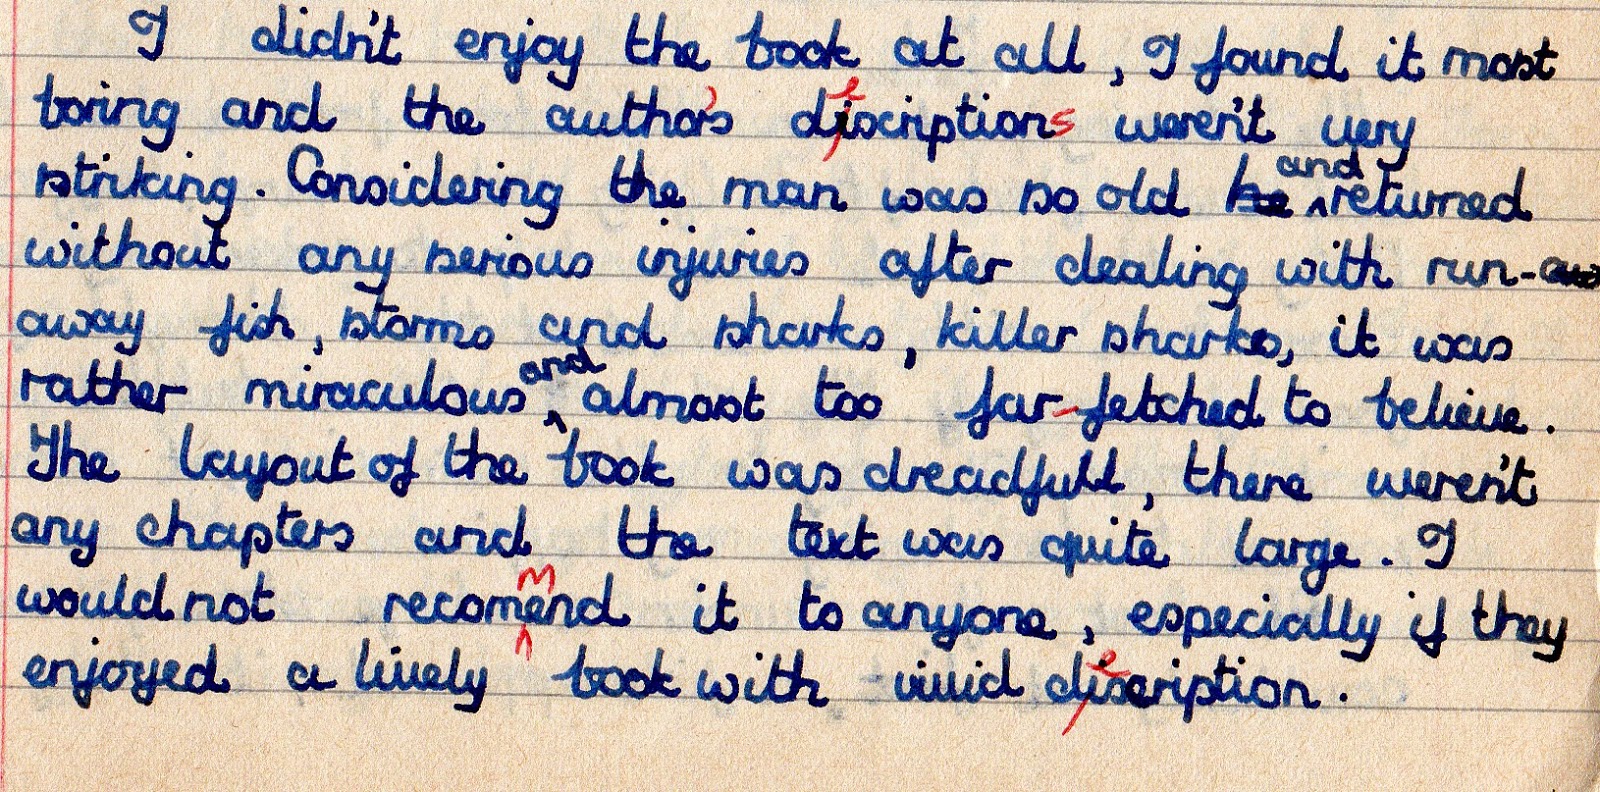 I didn't enjoy the book at all, I found it most
boring and the author's discriptions weren't very
striking. Considering the man was so old he and returned
without any serious injuries after dealing with run-aw
away fish, storms and sharks, killer sharks, it was
rather miraculous and almost too far-fetched to believe.
The layout of the book was dreadfull, there weren't
any chapters and the text was quite large. I
would not recommend it to anyone, especially if they
enjoyed a lively book with vivid discription.